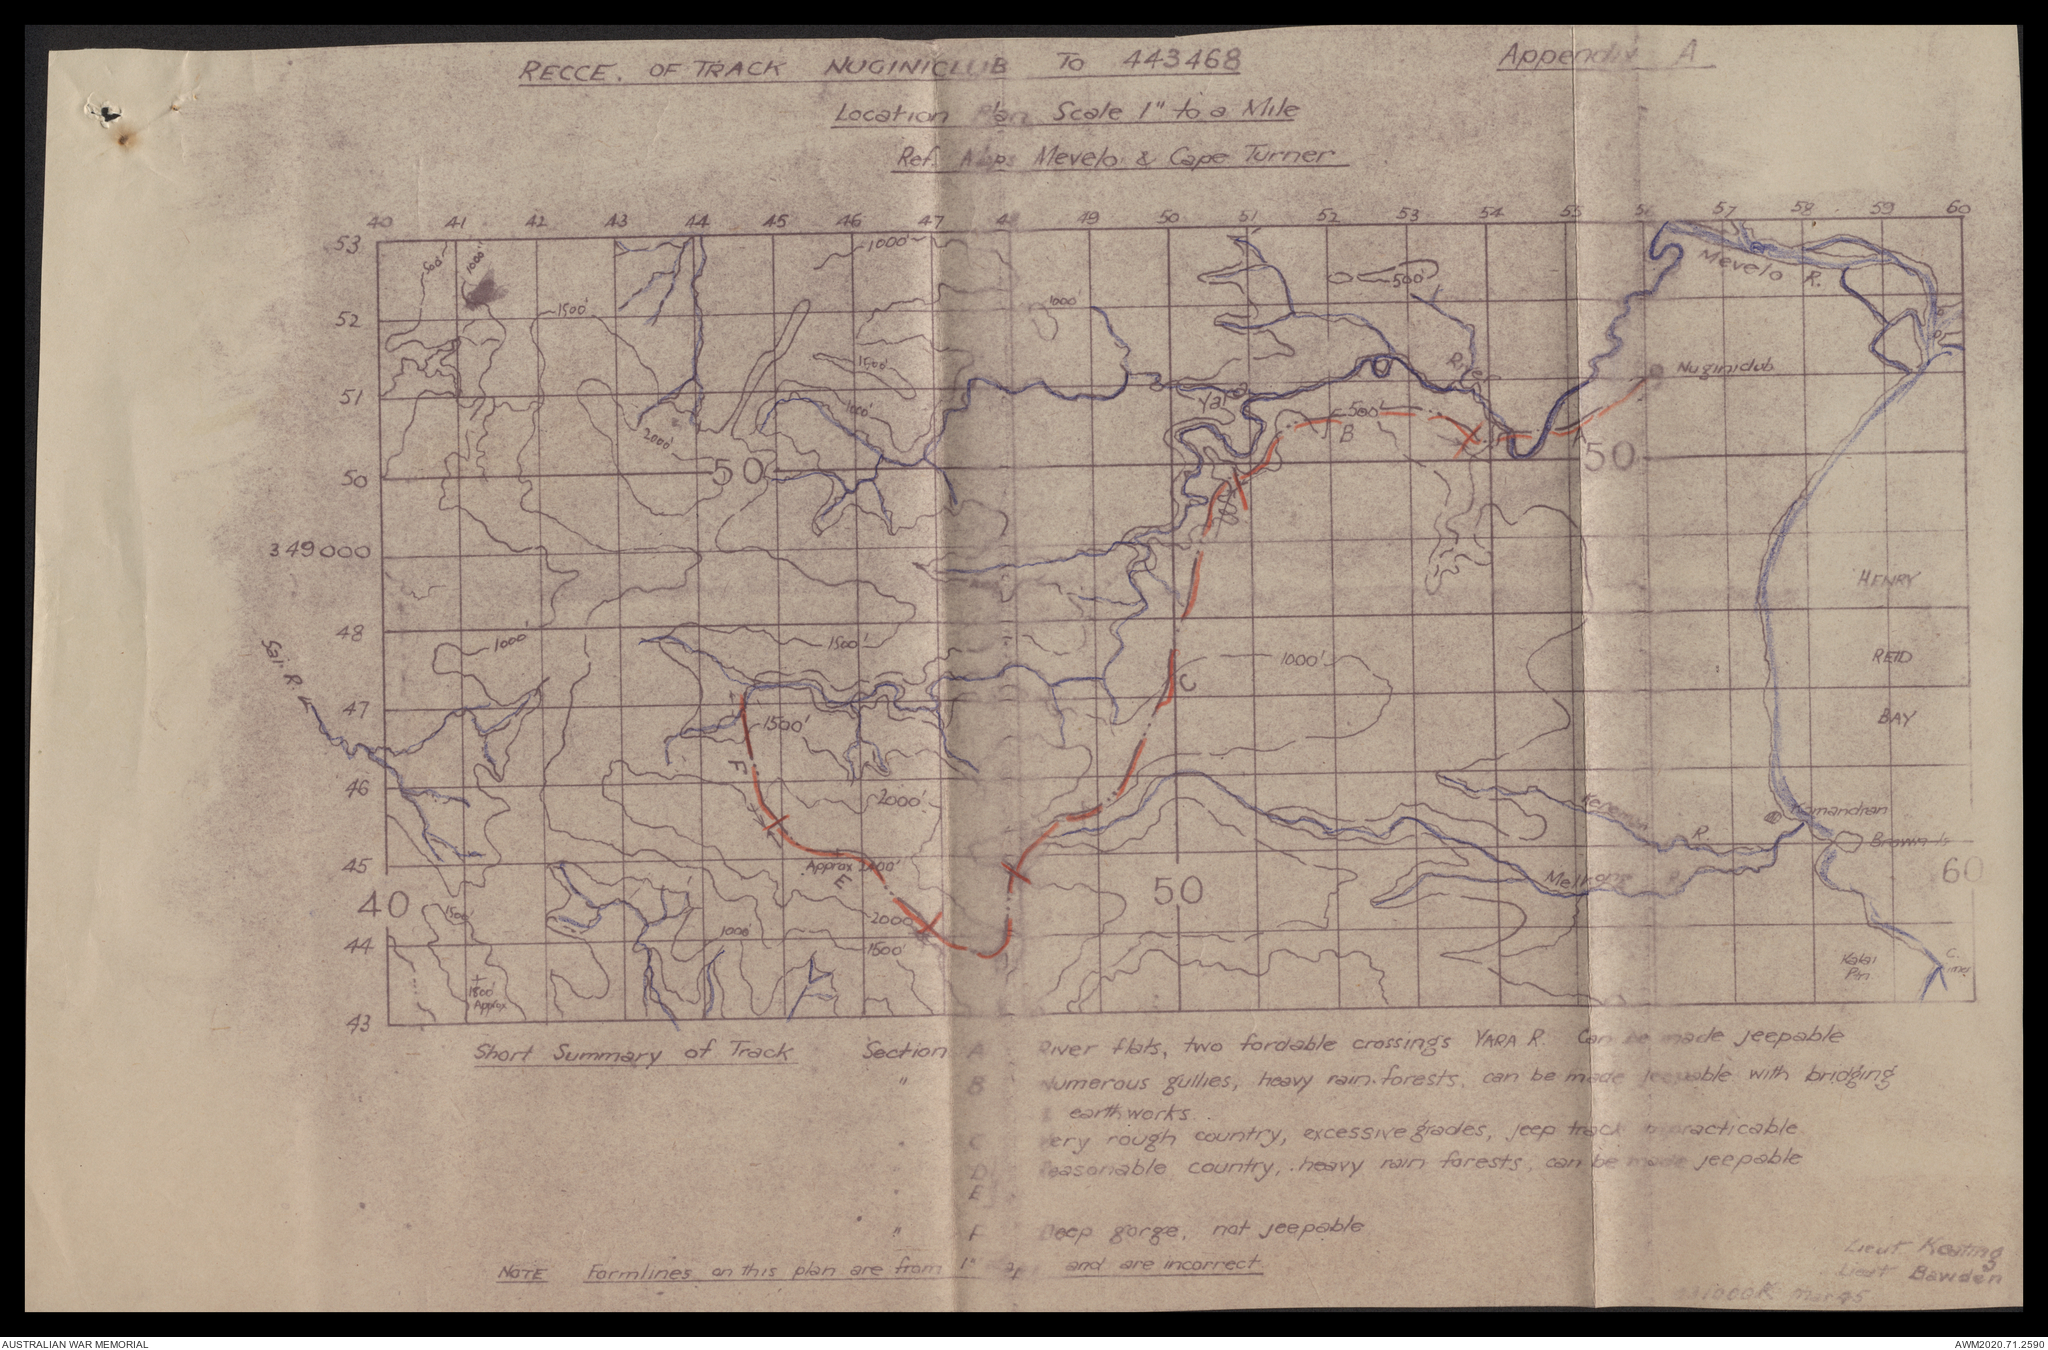 RECCE. OF TRACK NUGINICLUB TO 443468
Appendix A
Location Plan Scale 1" to a Mile
Ref. Maps Mevelo & Cape Turner
40 41 42 43 44 45 46 47 48 49 50 51 52 53 54 55 56 57 58 59 60
53
500' 1000' 1000' 500' Mevelo R.
52
1500' 1000'
1500' River Nuginiclub
51
1000' Yara 500'
2000' B
50
50 50
349000
HENRY
48
1000' 1500' 1000' REID
Sai R
C
47
1500' BAY
F
46
2000' Komandran
R. Brown Is
45
Approx
E
50 60
40
1500' 2000'
44
1000' 1500' Kalai
Pln
C.
1800'
Approx
43
Short Summary of Track Section A River flats, two fordable crossings YARA R. Can be made jeepable
" B Numerous gullies, heavy rain forests, can be made jeepable with bridging
& earthworks.
" C Very rough country, excessive grades, jeep track impracticable
" D Reasonable country, heavy rain forests, can be made jeepable
" E
" F Deep gorge, not jeepable
NOTE Formlines on this plan are from 1" and are incorrect
Lieut Keating
Lieut Bawden
Mar 45
AUSTRALIAN WAR MEMORIAL
AWM2020.71.2590